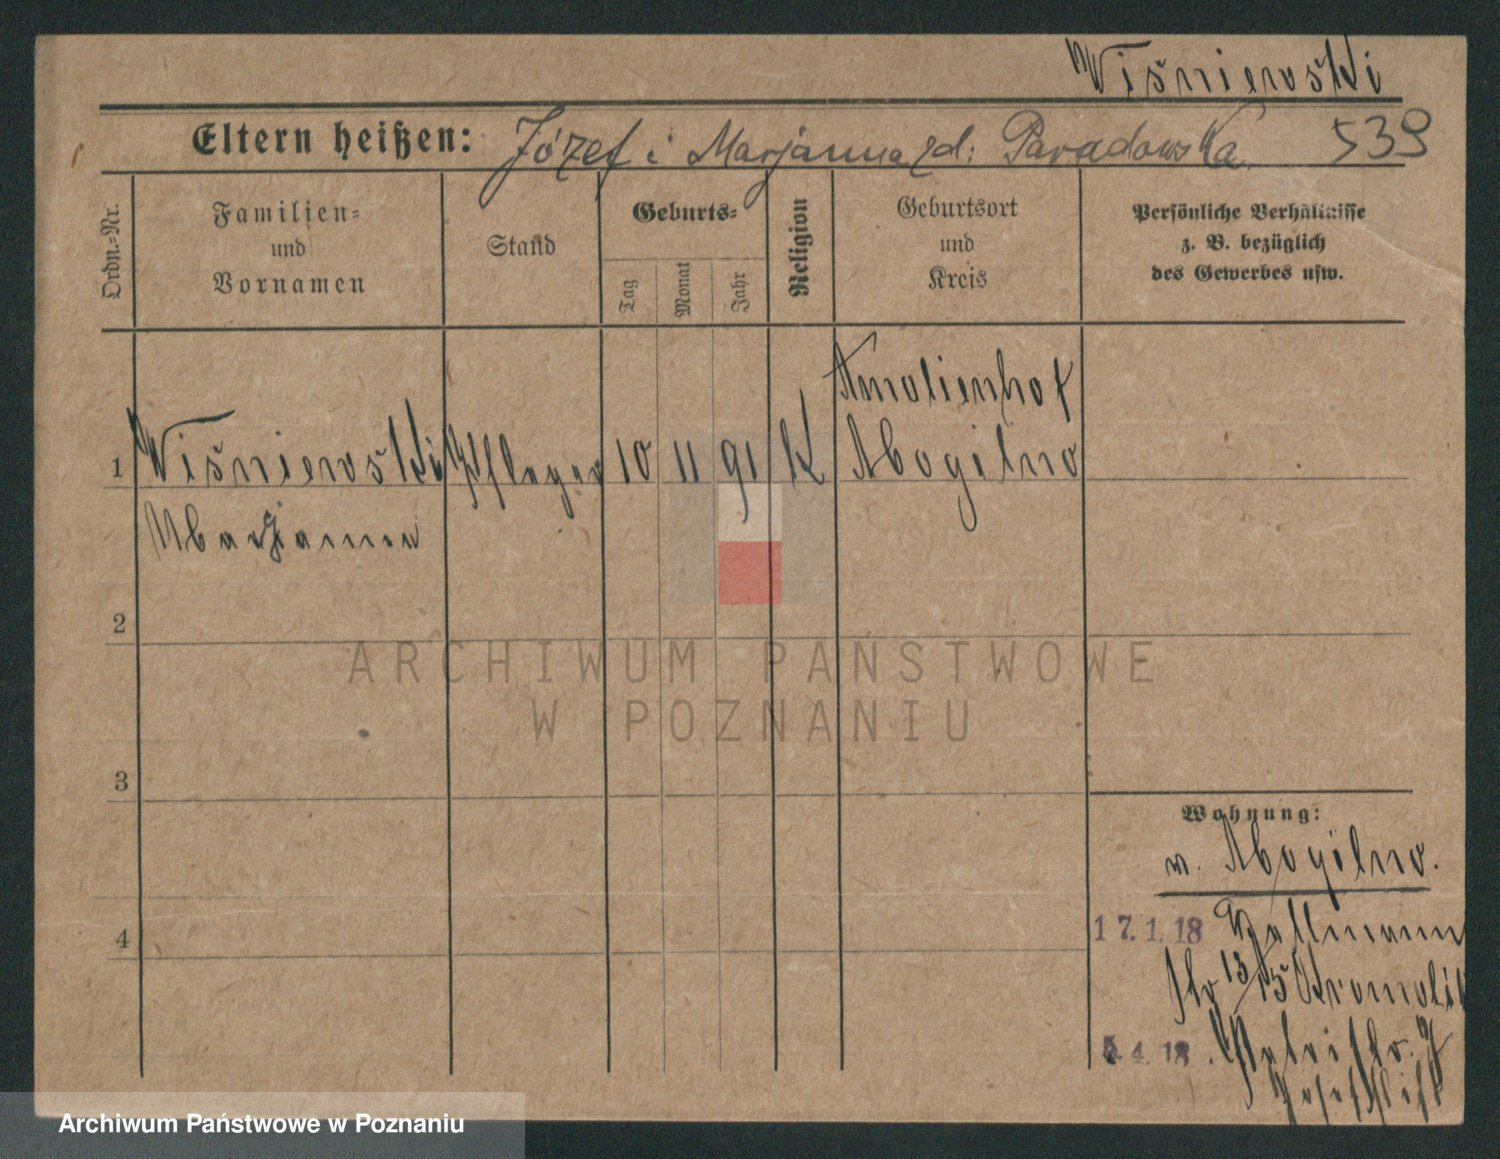 Wiśniewski
Eltern heißen: Józef i Marjanna zd: Paradowska. 539
Ordn.-Nr.
Familien- und Vornamen
Stand
Geburts-
Tag
Monat
Jahr
Religion
Geburtsort und Kreis
Persönliche Verhältnisse z. B. bezüglich des Gewerbes usw.
Amalienhof
1 Wiśniewski Pfleger 10 11 91 K Mogilno
Marjanna
2
ARCHIWUM PAŃSTWOWE
W POZNANIU
3
Wohnung:
v. Mogilno.
4
17.1.18 Hallmann
str 13/15
5.4.18.
Archiwum Państwowe w Poznaniu